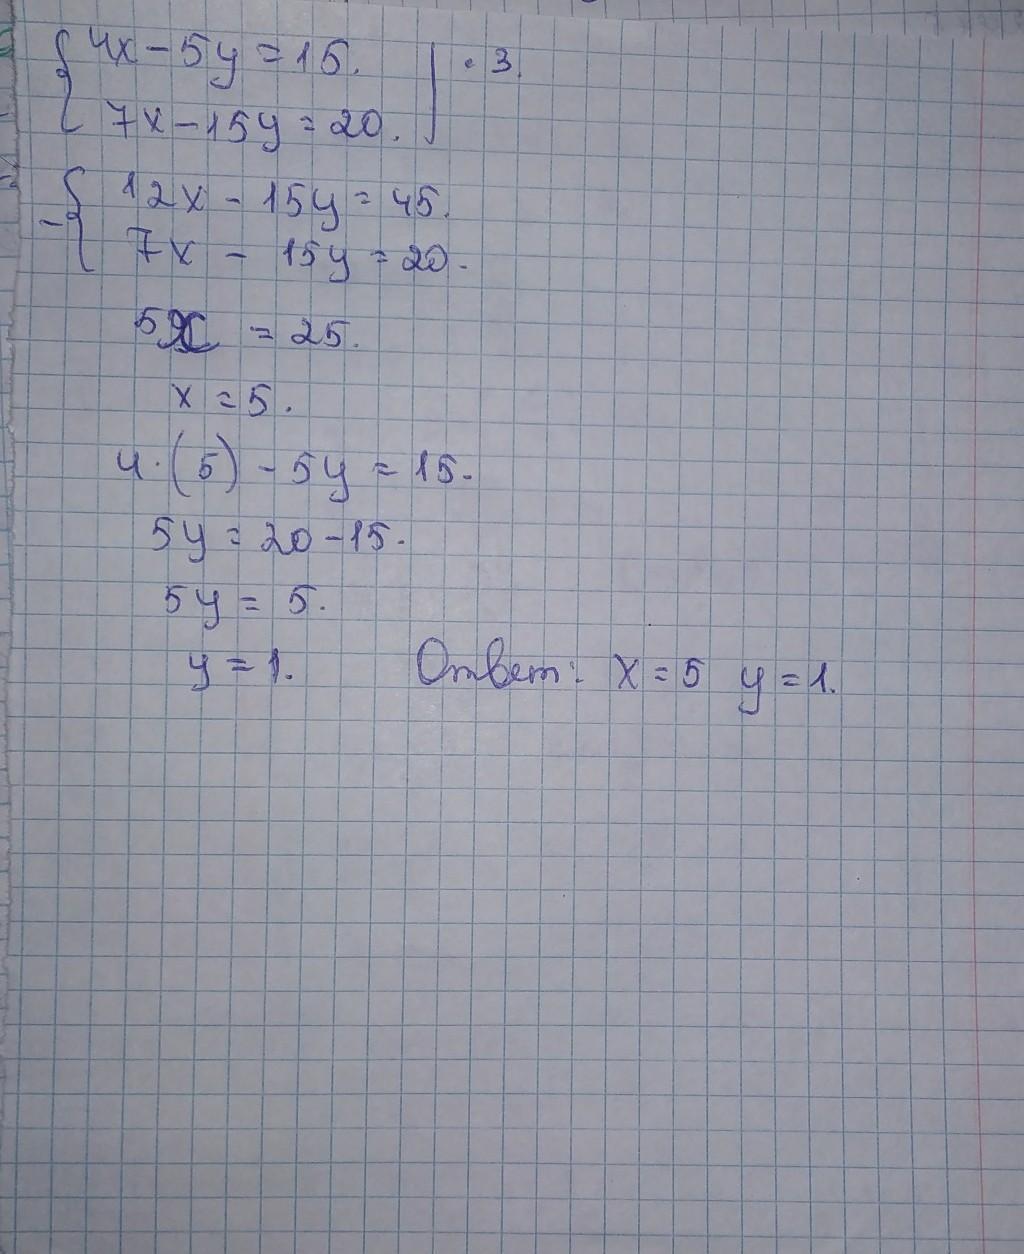 { 4x - 5y = 15. | · 3.
7x - 15y = 20.
- { 12x - 15y = 45.
7x - 15y = 20.
5x = 25.
x = 5.
4·(5) - 5y = 15.
5y = 20 - 15.
5y = 5.
y = 1. Ответ: x = 5 y = 1.